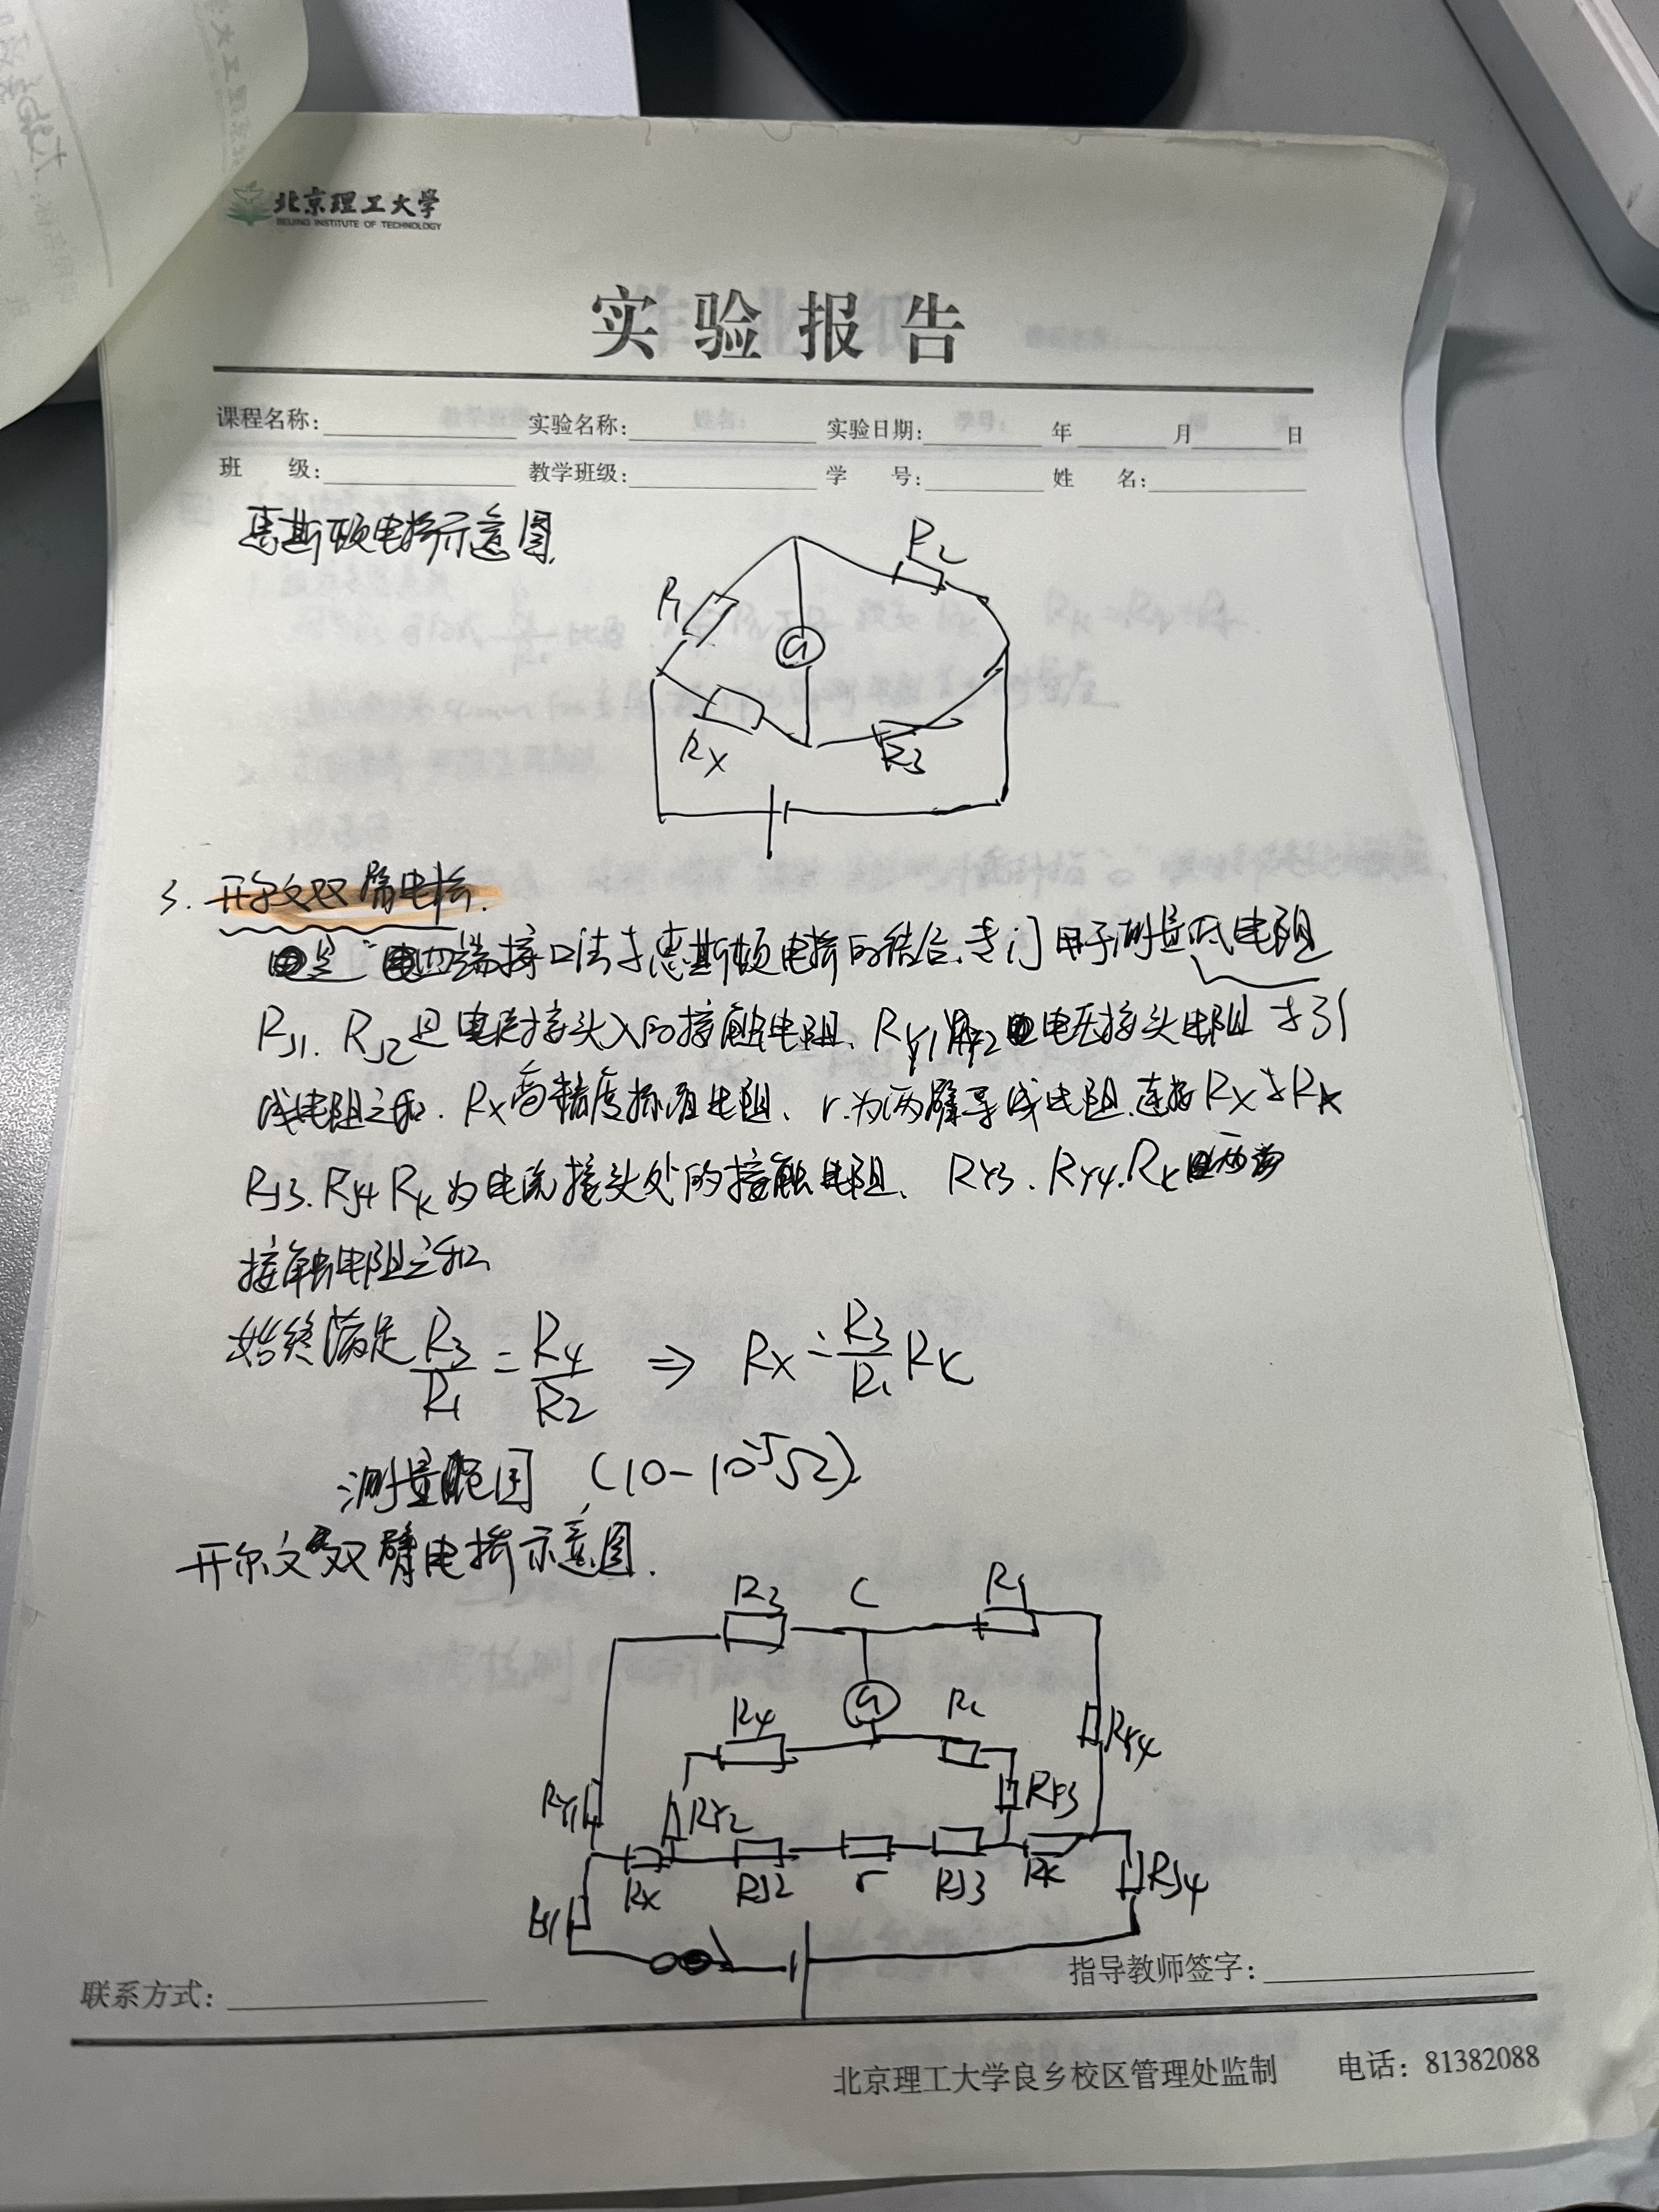 北京理工大学
BEIJING INSTITUTE OF TECHNOLOGY
实验报告
课程名称: 实验名称: 实验日期: 年 月 日
班 级: 教学班级: 学 号: 姓 名:
惠斯顿电桥示意图.
R2
R1
G
Rx
R3
3. 开尔文双臂电桥.
是 四端接口法与惠斯顿电桥的结合、专门用于测量低电阻
RJ1. RJ2是电流接头入的接触电阻、RY1 电压接头电阻与引
线电阻之和. Rx高精度标准电阻、r.为两臂导线电阻.连接Rx与Rk
RJ3. RJ4 Rk为电流接头处的接触电阻、 RY3. RY4. Rk
接触电阻之和
始终满足 R3/R1 = R4/R2 ⇒ Rx = R3/R1 Rk
测量范围 (10-10⁻⁵Ω).
开尔文双臂电桥示意图.
R3 C R1
G
R4
RY4
RY1 RY2 RY3
Rx RJ2 r RJ3 Rk RJ4
RJ1
指导教师签字:
联系方式:
北京理工大学良乡校区管理处监制 电话: 81382088